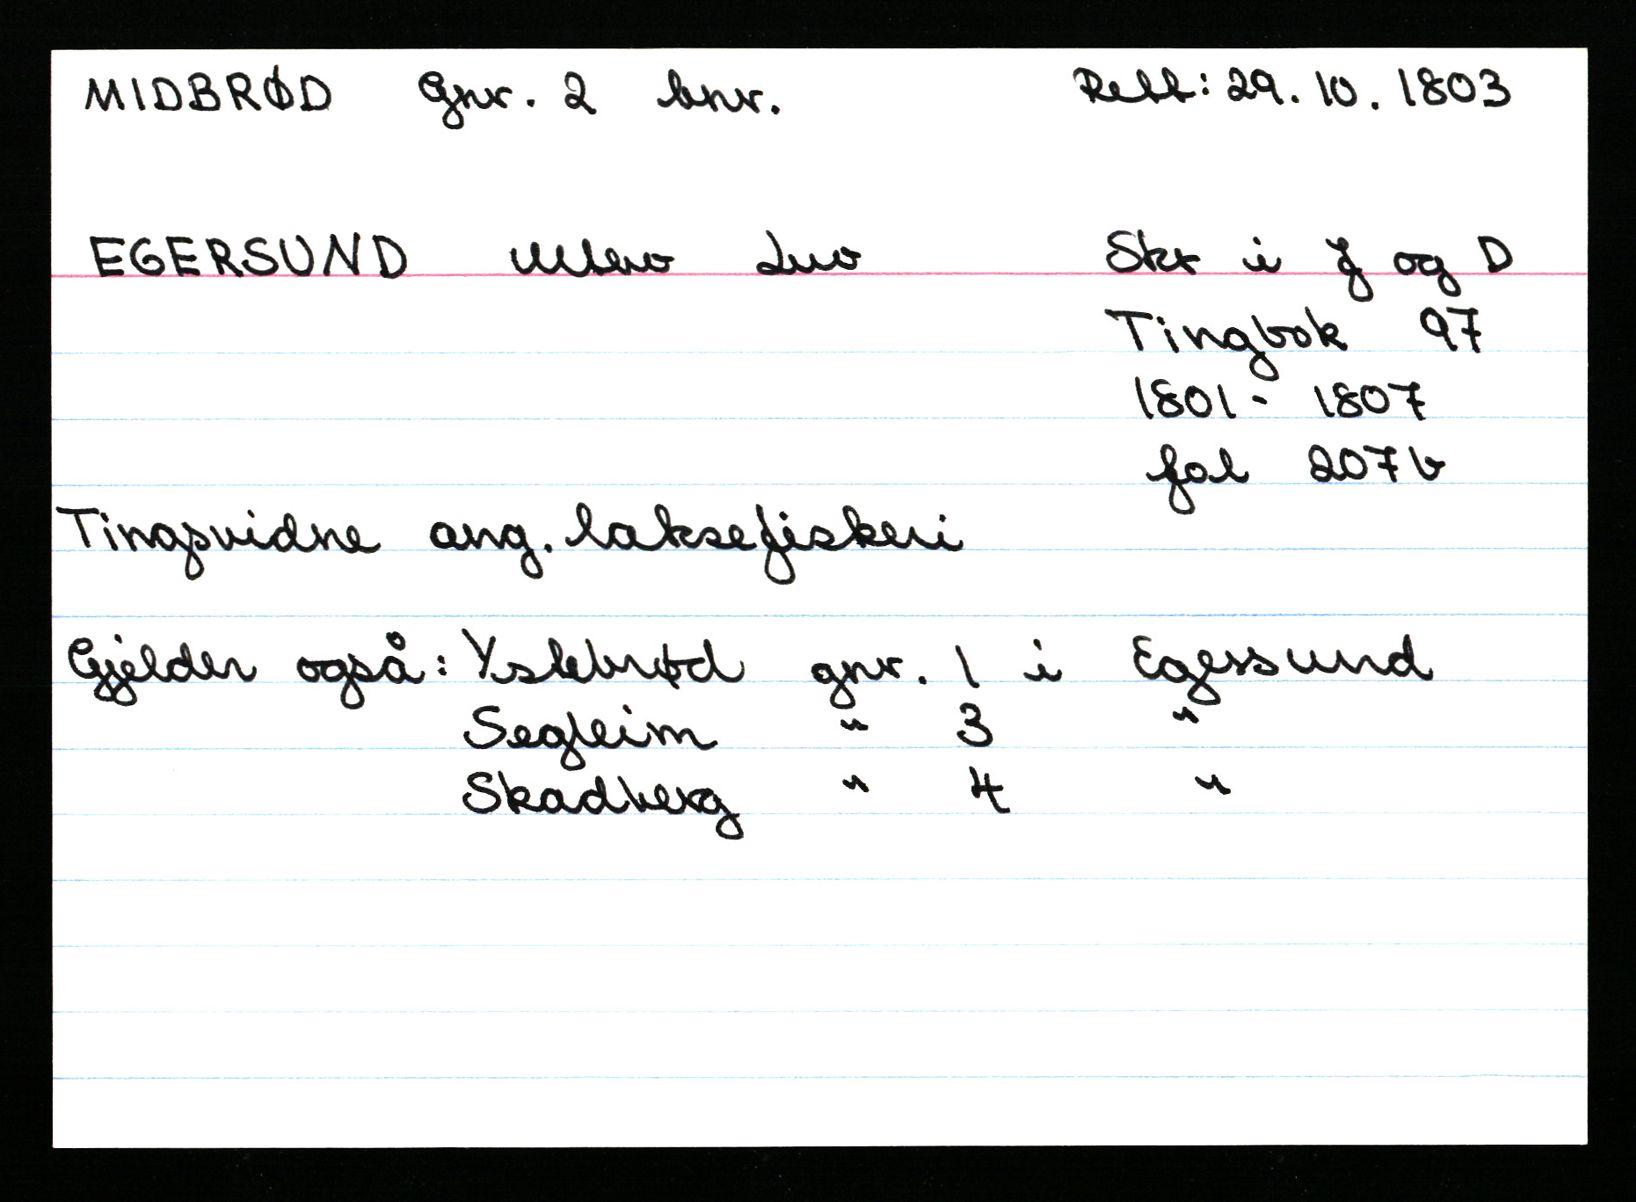 MIDBRØD Gnr. 2 bnr. Rett: 29.10.1803
EGERSUND Skr i J og D
Tingbok 97
1801 - 1807
fol 207b
Tingsvidne ang. laksefiskeri
Gjelder også: Ystebrød gnr. 1 i Egersund
Segleim " 3 "
Skadberg " 4 "